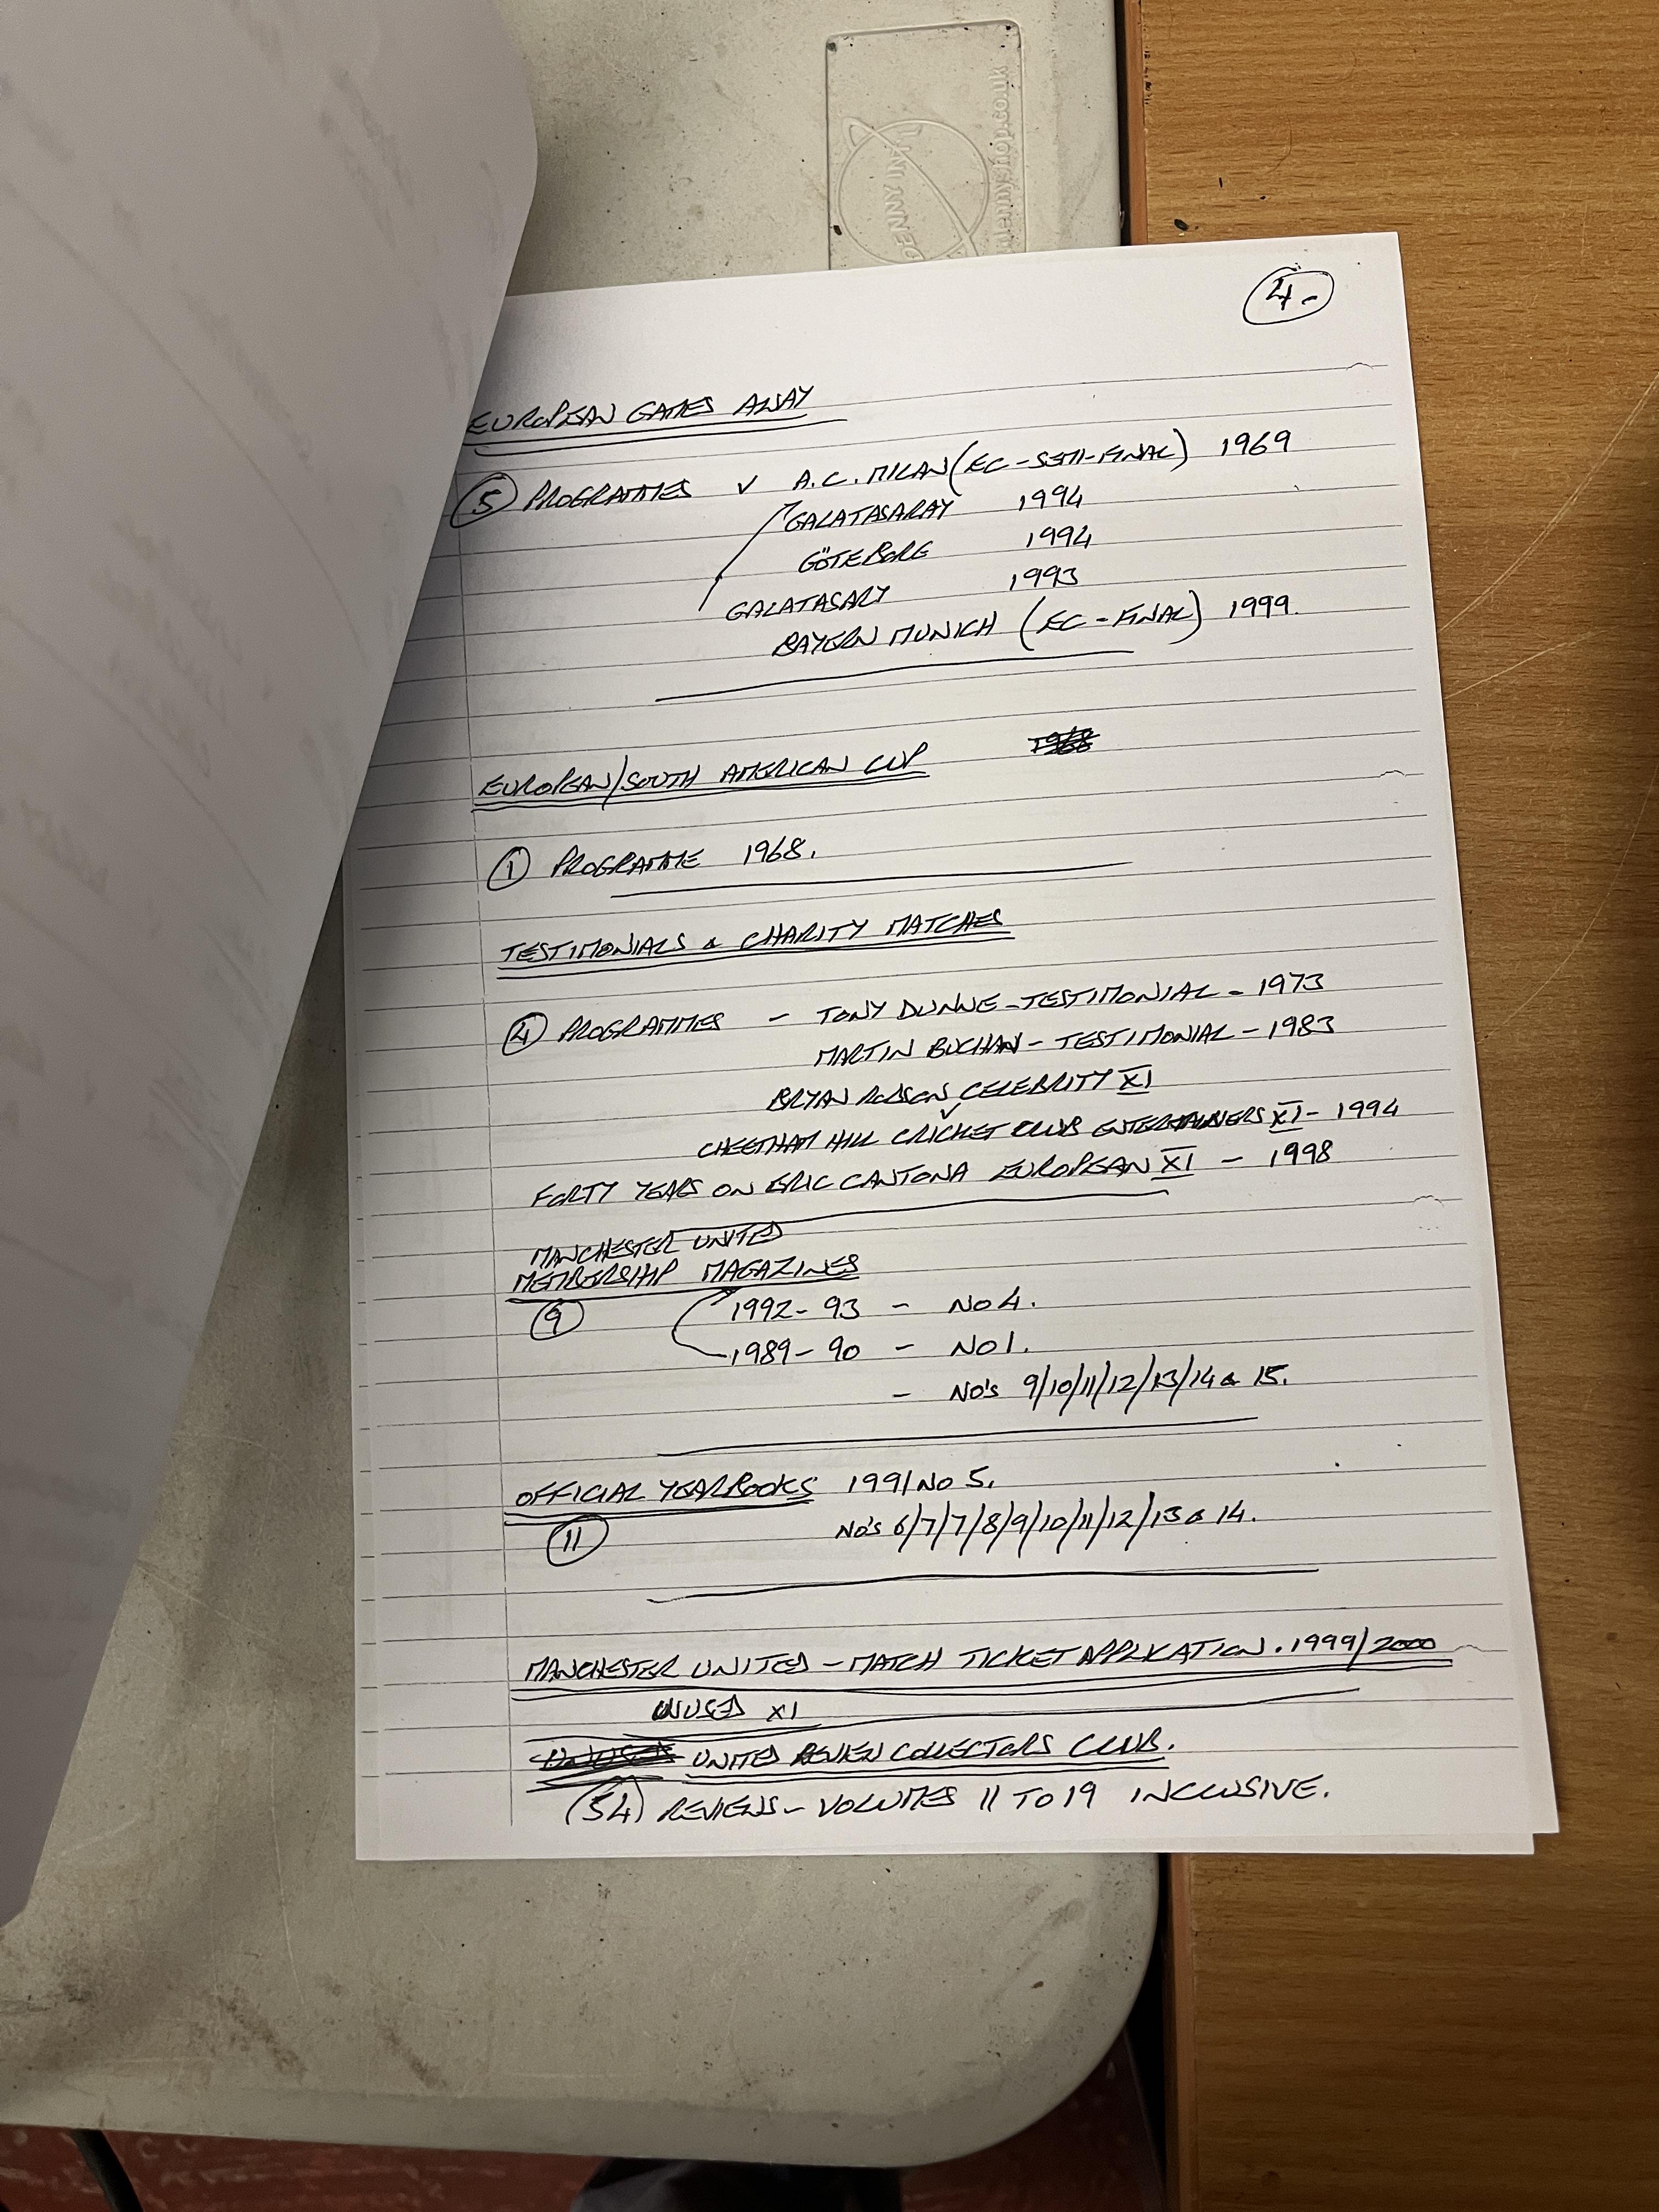 DENNY INT'L
dennyshop.co.uk
4.
EUROPEAN GAMES AWAY
5 PROGRAMMES v A.C. MILAN (EC-SEMI-FINAL) 1969
GALATASARAY 1994
GÖTEBORG 1994
GALATASARY 1993
BAYERN MUNICH (EC-FINAL) 1999.
1968
EUROPEAN/SOUTH AMERICAN CUP
1 PROGRAMME 1968.
TESTIMONIALS & CHARITY MATCHES
4 PROGRAMMES - TONY DUNNE-TESTIMONIAL - 1973
MARTIN BUCHAN - TESTIMONIAL - 1983
BRYAN ROBSON CELEBRITY XI
v
CHEETHAM HILL CRICKET CLUB ENTERTAINERS XI - 1994
FORTY YEARS ON ERIC CANTONA EUROPEAN XI - 1998
MANCHESTER UNITED
MEMBERSHIP MAGAZINES
9 1992-93 - NO 4.
1989-90 - NO 1.
- NO's 9/10/11/12/13/14 & 15.
OFFICIAL YEARBOOKS 1991/NO 5.
11 NO's 6/7/7/8/9/10/11/12/13 & 14.
MANCHESTER UNITED - MATCH TICKET APPLICATION. 1999/2000
UNUSED X1
UNUSED UNITED REVIEW COLLECTORS CLUB.
(54) REVIEWS - VOLUMES 11 TO 19 INCLUSIVE.